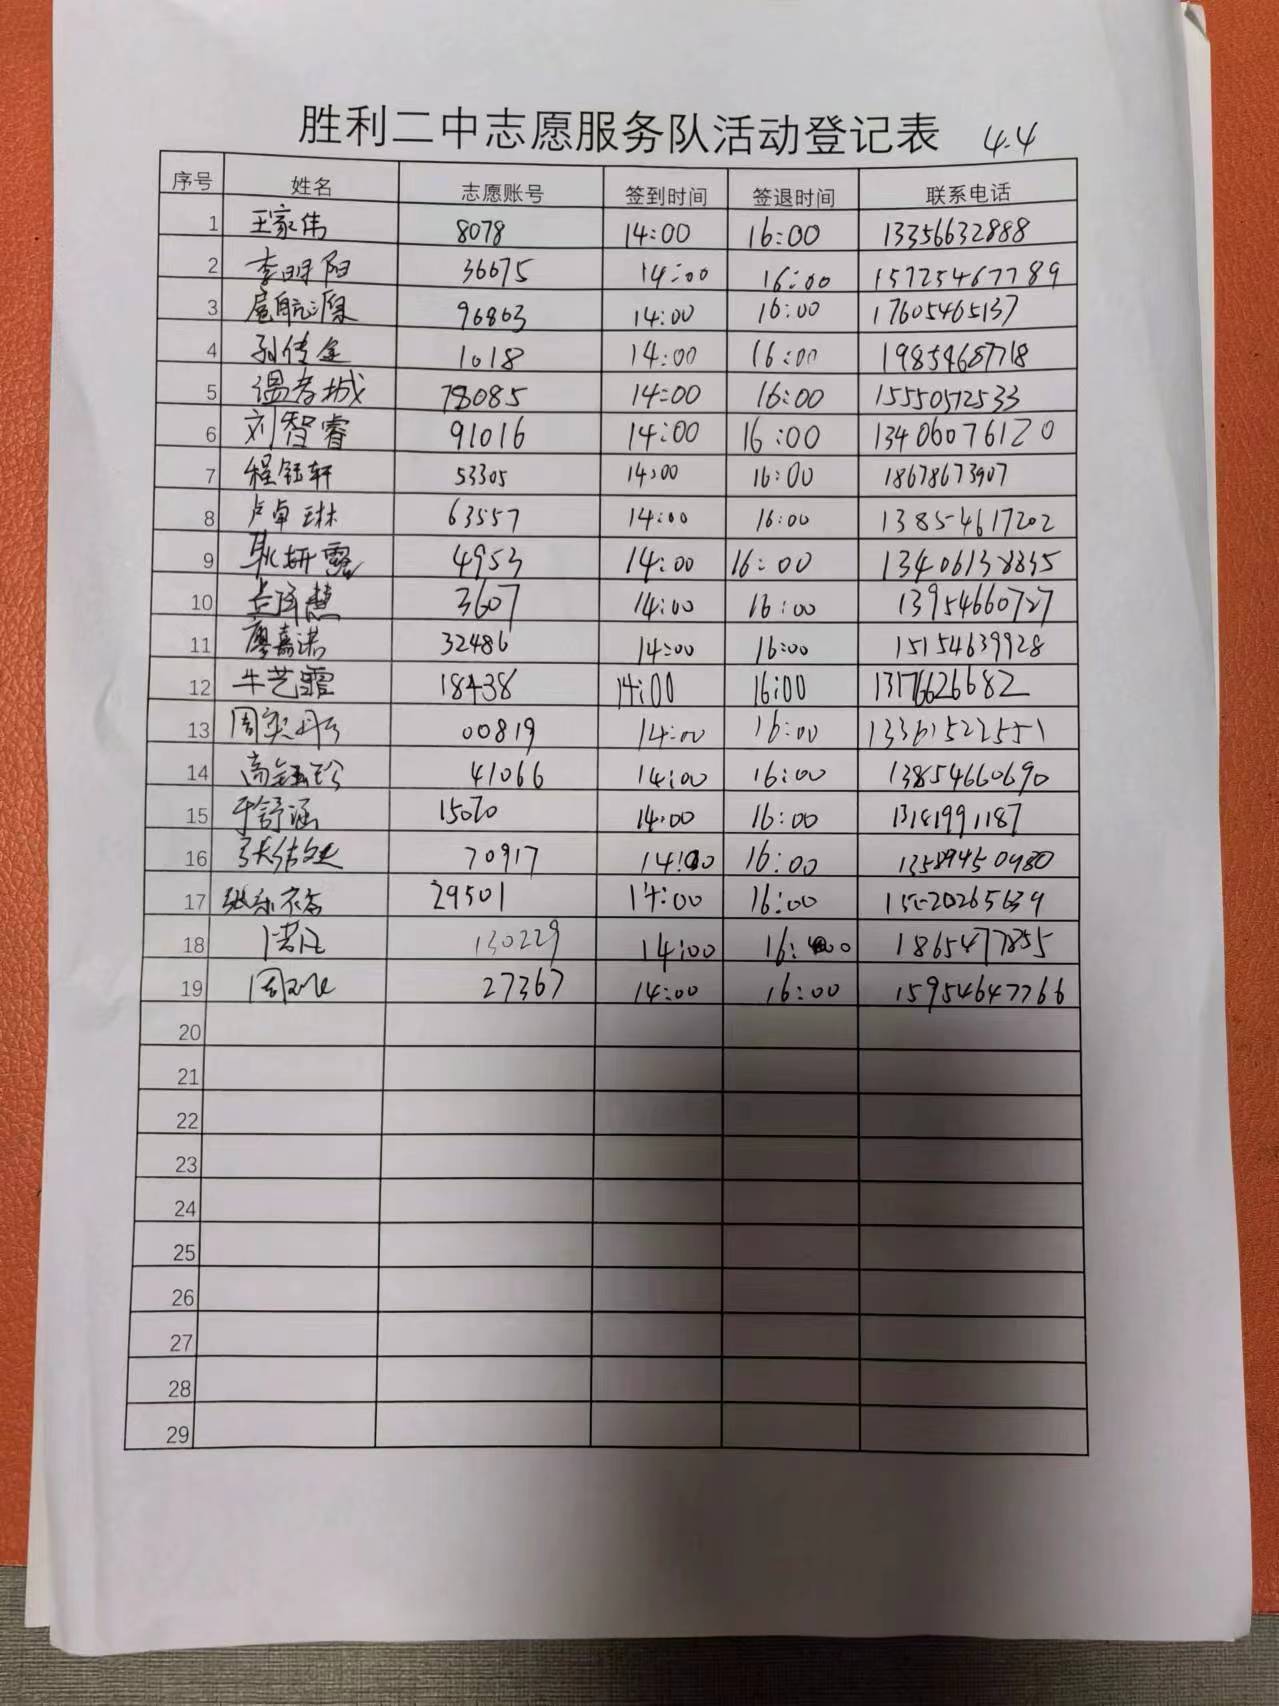 胜利二中志愿服务队活动登记表 4.4
序号 姓名 志愿账号 签到时间 签退时间 联系电话
1 王家伟 8078 14:00 16:00 13356632888
2 李明阳 36675 14:00 16:00 15725467789
3 扈航源 96863 14:00 16:00 17605465137
4 孙传金 1018 14:00 16:00 19854687718
5 温孝城 78085 14:00 16:00 15550572533
6 刘智睿 91016 14:00 16:00 13406076120
7 程钰轩 53305 14:00 16:00 18678673907
8 卢卓琳 63557 14:00 16:00 13854617202
9 耿妍露 4953 14:00 16:00 13406138835
10 3607 14:00 16:00 13954660727
11 廖嘉诺 32486 14:00 16:00 15154639928
12 牛艺霏 18438 14:00 16:00 13176626682
13 周奕彤 00819 14:00 16:00 13361522551
14 高钰珍 41066 14:00 16:00 13854660690
15 于舒涵 15070 14:00 16:00 13181991187
16 70917 14:00 16:00 13589450980
17 29501 14:00 16:00
18 130229 14:00 16:00 18654777855
19 27367 14:00 16:00 15954647766
20
21
22
23
24
25
26
27
28
29